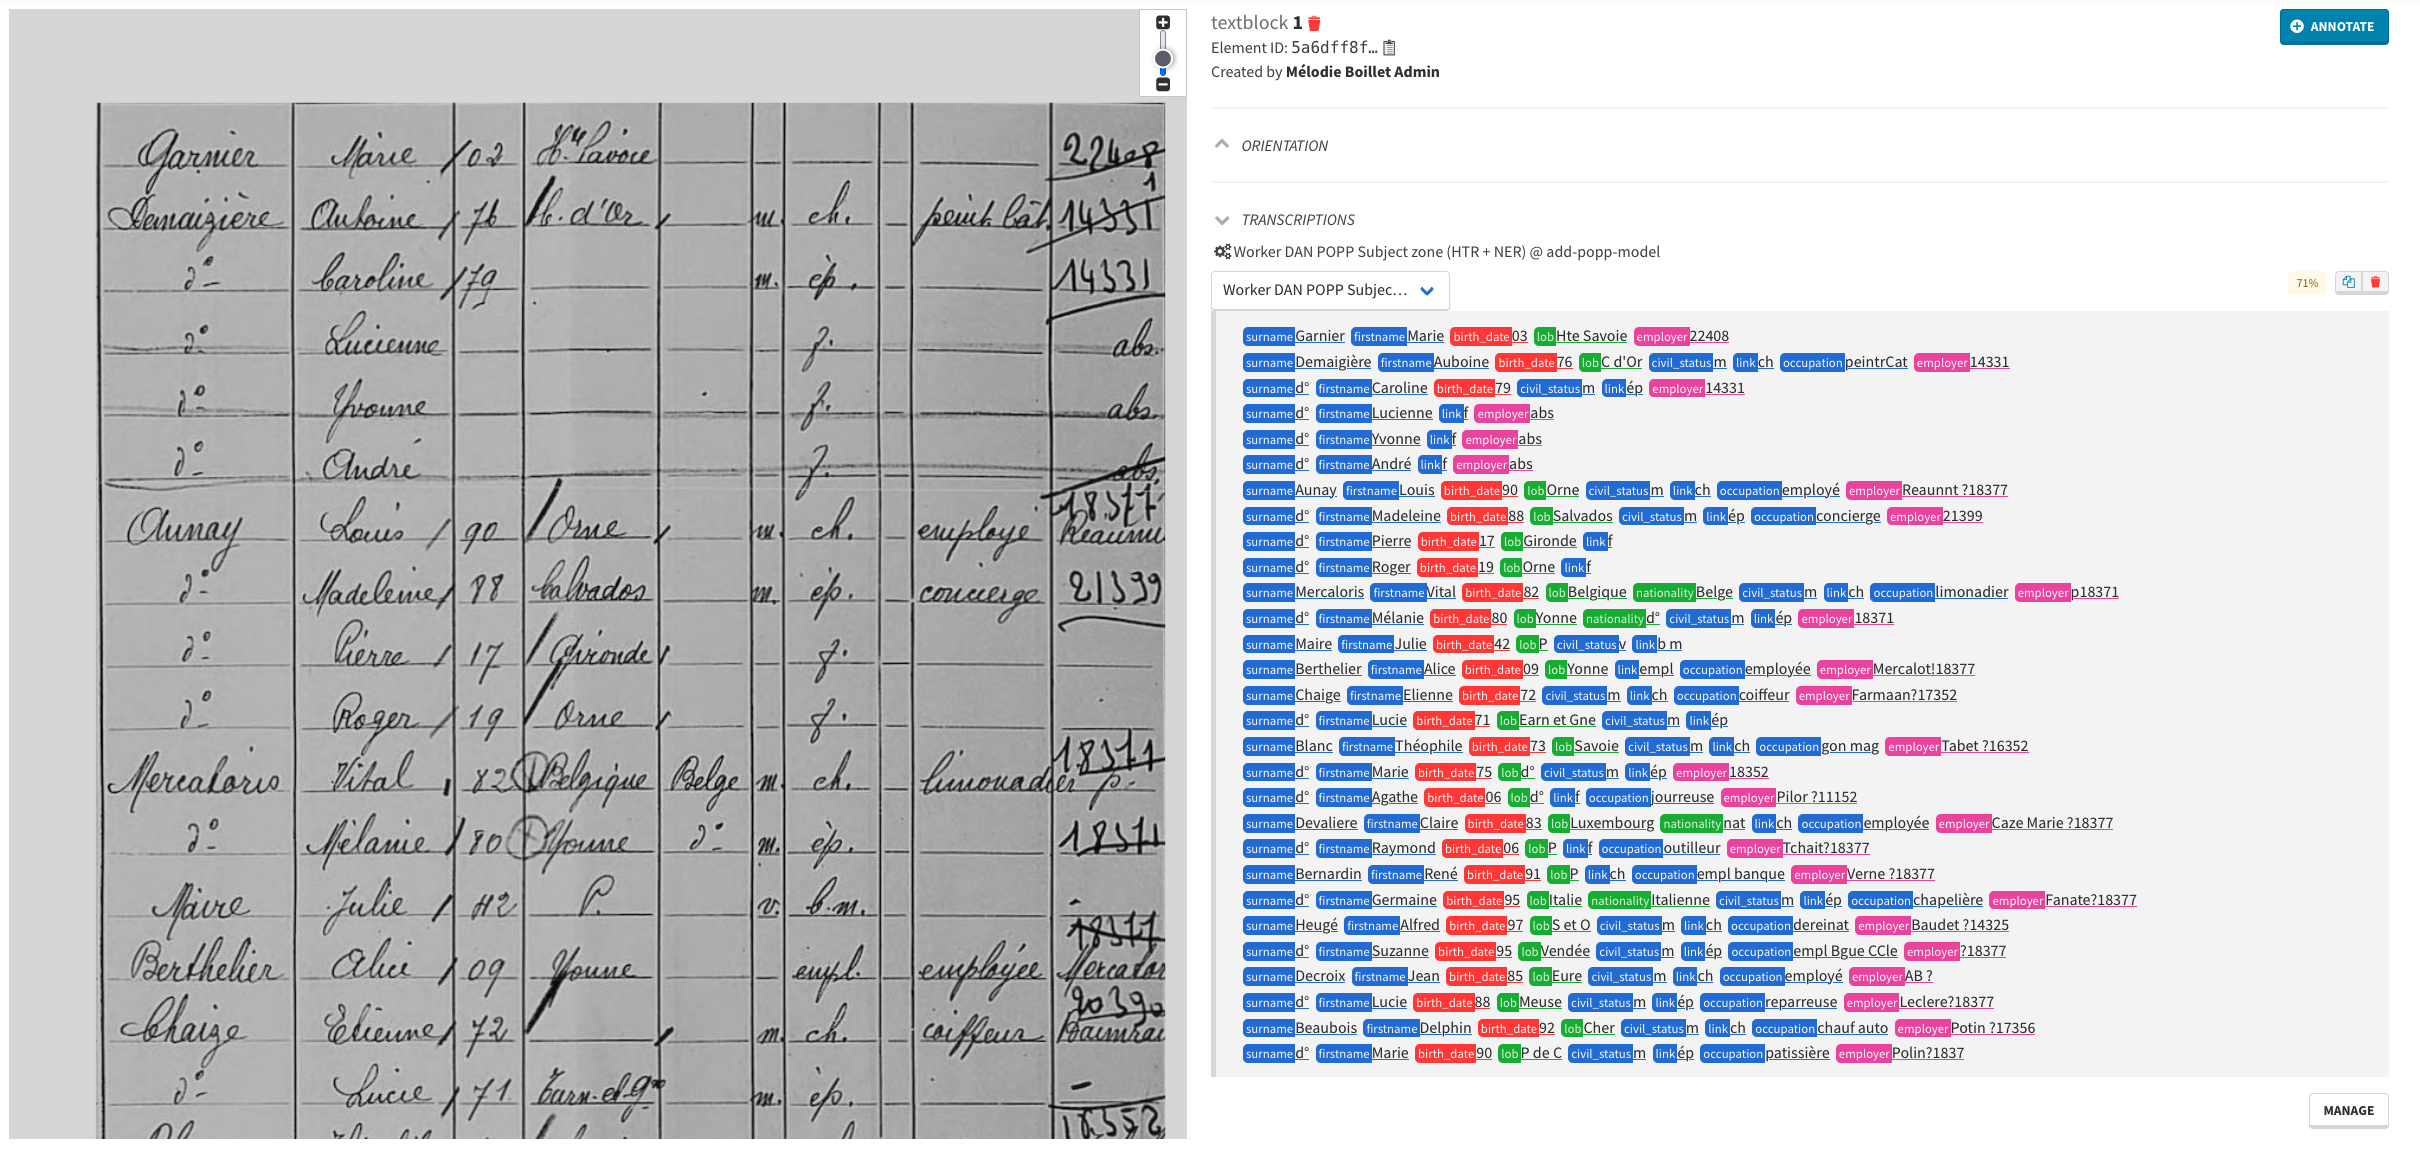 Garnier Marie 02 Hte Savoie 22408
1
Demaizière Antoine 76 C. d'Or m. ch. peint. bât. 14331
d° Caroline 79 m. ép. 14331
d° Lucienne f. abs.
d° Yvonne f. abs.
d° André f. abs.
18377
Aunay Louis 90 Orne m. ch. employé Réaumu
d° Madeleine 88 Calvados m. ép. concierge 21399
d° Pierre 17 Gironde f.
d° Roger 19 Orne f.
18377
Mercaloris Vital 82 Belgique Belge m. ch. limonadier p.
d° Mélanie 80 Yonne d° m. ép. 18371
Maire Julie 42 P. v. b.m. -
18377
Berthelier Alice 09 Yonne empl. employée Mercalor
20390
Chaize Etienne 72 m. ch. coiffeur
d° Lucie 71 Tarn-et-Gne m. ép. -
textblock 1
Element ID: 5a6dff8f…
Created by Mélodie Boillet Admin
ANNOTATE
ORIENTATION
TRANSCRIPTIONS
Worker DAN POPP Subject zone (HTR + NER) @ add-popp-model
Worker DAN POPP Subjec…
71%
surname Garnier firstname Marie birth_date 03 lob Hte Savoie employer 22408
surname Demaigière firstname Auboine birth_date 76 lob C d'Or civil_status m link ch occupation peintrCat employer 14331
surname d° firstname Caroline birth_date 79 civil_status m link ép employer 14331
surname d° firstname Lucienne link f employer abs
surname d° firstname Yvonne link f employer abs
surname d° firstname André link f employer abs
surname Aunay firstname Louis birth_date 90 lob Orne civil_status m link ch occupation employé employer Reaunnt ?18377
surname d° firstname Madeleine birth_date 88 lob Salvados civil_status m link ép occupation concierge employer 21399
surname d° firstname Pierre birth_date 17 lob Gironde link f
surname d° firstname Roger birth_date 19 lob Orne link f
surname Mercaloris firstname Vital birth_date 82 lob Belgique nationality Belge civil_status m link ch occupation limonadier employer p18371
surname d° firstname Mélanie birth_date 80 lob Yonne nationality d° civil_status m link ép employer 18371
surname Maire firstname Julie birth_date 42 lob P civil_status v link b m
surname Berthelier firstname Alice birth_date 09 lob Yonne link empl occupation employée employer Mercalot!18377
surname Chaige firstname Elienne birth_date 72 civil_status m link ch occupation coiffeur employer Farmaan?17352
surname d° firstname Lucie birth_date 71 lob Earn et Gne civil_status m link ép
surname Blanc firstname Théophile birth_date 73 lob Savoie civil_status m link ch occupation gon mag employer Tabet ?16352
surname d° firstname Marie birth_date 75 lob d° civil_status m link ép employer 18352
surname d° firstname Agathe birth_date 06 lob d° link f occupation jourreuse employer Pilor ?11152
surname Devaliere firstname Claire birth_date 83 lob Luxembourg nationality nat link ch occupation employée employer Caze Marie ?18377
surname d° firstname Raymond birth_date 06 lob P link f occupation outilleur employer Tchait?18377
surname Bernardin firstname René birth_date 91 lob P link ch occupation empl banque employer Verne ?18377
surname d° firstname Germaine birth_date 95 lob Italie nationality Italienne civil_status m link ép occupation chapelière employer Fanate?18377
surname Heugé firstname Alfred birth_date 97 lob S et O civil_status m link ch occupation dereinat employer Baudet ?14325
surname d° firstname Suzanne birth_date 95 lob Vendée civil_status m link ép occupation empl Bgue CCle employer ?18377
surname Decroix firstname Jean birth_date 85 lob Eure civil_status m link ch occupation employé employer AB ?
surname d° firstname Lucie birth_date 88 lob Meuse civil_status m link ép occupation reparreuse employer Leclere?18377
surname Beaubois firstname Delphin birth_date 92 lob Cher civil_status m link ch occupation chauf auto employer Potin ?17356
surname d° firstname Marie birth_date 90 lob P de C civil_status m link ép occupation patissière employer Polin?1837
MANAGE